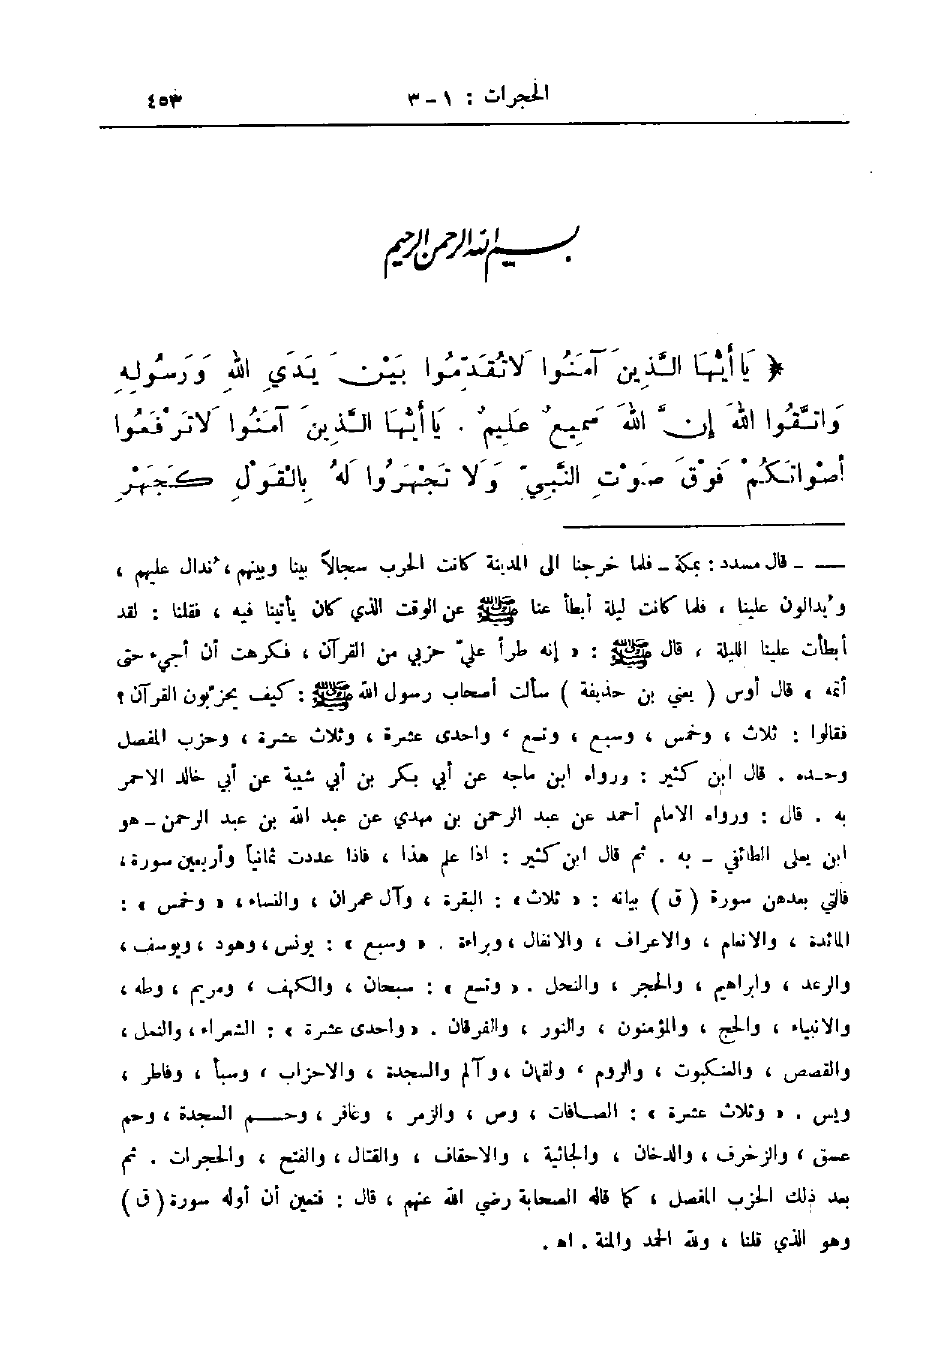 الحجرات : ١ - ٣ ٤٥٣
بسم الله الرحمن الرحيم
﴿ يَا أَيُّهَا الَّذِينَ آمَنُوا لَا تُقَدِّمُوا بَيْنَ يَدَيِ اللهِ وَرَسُولِهِ
وَاتَّقُوا اللهَ إِنَّ اللهَ سَمِيعٌ عَلِيمٌ . يَا أَيُّهَا الَّذِينَ آمَنُوا لَا تَرْفَعُوا
أَصْوَاتَكُمْ فَوْقَ صَوْتِ النَّبِيِّ وَلَا تَجْهَرُوا لَهُ بِالْقَوْلِ كَجَهْرِ
ــ ـ قال مسدد : بمكة ـ فلما خرجنا الى المدينة كانت الحرب سجالاً بيننا وبينهم ، نُدال عليهم ،
ويُدالون علينا ، فلما كانت ليلة أبطأ عنا ﷺ عن الوقت الذي كان يأتينا فيه ، فقلنا : لقد
أبطأت علينا الليلة ، قال ﷺ : « إنه طرأ عليّ حزبي من القرآن ، فكرهت أن أجيء حتى
أتمه » قال أوس ( يعني بن حذيفة ) سألت أصحاب رسول الله ﷺ : كيف يحزّبون القرآن ؟
فقالوا : ثلاث ، وخمس ، وسبع ، وتسع ، واحدى عشرة ، وثلاث عشرة ، وحزب المفصل
وحــده . قال ابن كثير : ورواه ابن ماجه عن أبي بكر بن أبي شيبة عن أبي خالد الاحمر
به . قال : ورواه الامام أحمد عن عبد الرحمن بن مهدي عن عبد الله بن عبد الرحمن ـ هو
ابن يعلى الطائفي ـ به . ثم قال ابن كثير : اذا علم هذا ، فاذا عددت ثمانياً وأربعين سورة ،
فالتي بعدهن سورة ( ق ) بيانه : « ثلاث » : البقرة ، وآل عمران ، والنساء ، « وخمس » :
المائدة ، والانعام ، والاعراف ، والانفال ، وبراءة . « وسبع » : يونس ، وهود ، ويوسف ،
والرعد ، وابراهيم ، والحجر ، والنحل . « وتسع » : سبحان ، والكهف ، ومريم ، وطه ،
والانبياء ، والحج ، والمؤمنون ، والنور ، والفرقان . « واحدى عشرة » : الشعراء ، والنمل ،
والقصص ، والعنكبوت ، والروم ، ولقمان ، وآلم والسجدة ، والاحزاب ، وسبأ ، وفاطر ،
ويس . « وثلاث عشرة » : الصــافات ، وص ، والزمر ، وغافر ، وحــم السجدة ، وحم
عسق ، والزخرف ، والدخان ، والجاثية ، والاحقاف ، والقتال ، والفتح ، والحجرات . ثم
بعد ذلك الحزب المفصل ، كما قاله الصحابة رضي الله عنهم ، قال : فتعين أن أوله سورة ( ق )
وهو الذي قلنا ، ولله الحمد والمنة . اهـ .